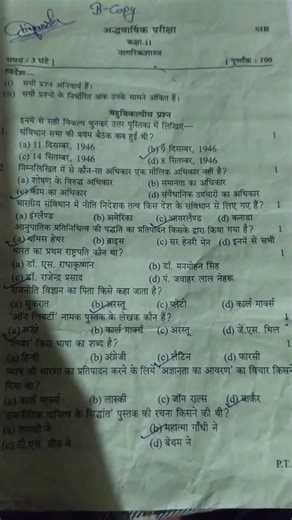 B-Copy
अर्द्धवार्षिक परीक्षा
MR
कक्षा-11
नागरिकशास्त्र
समय : 3 घंटे] [पूर्णांक : 100
निर्देश—
(i) सभी प्रश्न अनिवार्य हैं।
(ii) सभी प्रश्नों के निर्धारित अंक उनके सामने अंकित हैं।
बहुविकल्पीय प्रश्न
इनमें से सही विकल्प चुनकर उत्तर पुस्तिका में लिखिए—
1. संविधान सभा की प्रथम बैठक कब हुई थी? 1
(a) 11 दिसम्बर, 1946 (b) 9 दिसम्बर, 1946
(c) 14 सितम्बर, 1946 (d) 8 सितम्बर, 1946
2. निम्नलिखित में से कौन-सा अधिकार एक मौलिक अधिकार नहीं है? 1
(a) शोषण के विरुद्ध अधिकार (b) समानता का अधिकार
(c) काम का अधिकार (d) संवैधानिक उपचारों का अधिकार
भारतीय संविधान में नीति निदेशक तत्व किस देश के संविधान से लिए गए हैं? 1
(a) इंग्लैण्ड (b) अमेरिका (c) आयरलैण्ड (d) कनाडा
आनुपातिक प्रतिनिधित्व की पद्धति का प्रतिपादन किसके द्वारा किया गया है? 1
(a) थॉमस हेयर (b) ब्राइस (c) सर हेनरी मेन (d) इनमें से सभी
भारत का प्रथम राष्ट्रपति कौन था? 1
(a) डॉ. एस. राधाकृष्णन (b) डॉ. मनमोहन सिंह
(c) डॉ. राजेन्द्र प्रसाद (d) पं. जवाहर लाल नेहरू
राजनीति विज्ञान का पिता किसे कहा जाता है?
(a) सुकरात (b) अरस्तू (c) प्लेटो (d) कार्ल मार्क्स
'ऑन लिबर्टी' नामक पुस्तक के लेखक कौन हैं? 1
(a) रूसो (b) कार्ल मार्क्स (c) अरस्तू (d) जे.एस. मिल
किस भाषा का शब्द है? 1
(a) हिन्दी (b) अंग्रेजी (c) लैटिन (d) फारसी
न्याय की धारणा का प्रतिपादन करने के लिये 'अज्ञानता का आवरण' का विचार किसने
दिया था?
(a) कार्ल मार्क्स (b) लास्की (c) जॉन राल्स (d) बार्कर
'राजनीतिक दायित्व के सिद्धांत' पुस्तक की रचना किसने की थी?
(a) लास्की ने (b) महात्मा गाँधी ने
(c) टी.एच. ग्रीन ने (d) बेंथम ने
P.T.